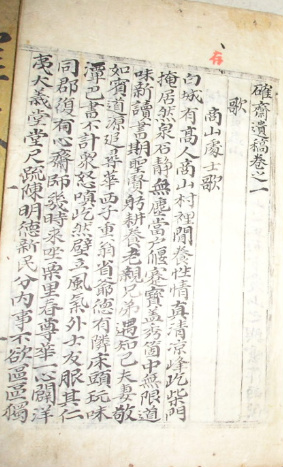 確齋遺稿卷之一
歌
高山處士歌
白城有高人高山村裡閒養性情真清凉峰屹柴門
掩居然泉石靜無塵當戶偃蹇寶盖秀箇中無限道
味新讀書期聖賢躬耕養老親兄弟遇知己夫妻敬
如賓道源追尊華西子重翁省爺德有隣床頭玩味
潭巴書不計衆怒嗔屹然壁立風氣外士友服其仁
同郡復有心齋師幾時來坐栗里春尊華一心闢洋
夷大義堂堂尺疏陳明德新民分內事不欲區區獨